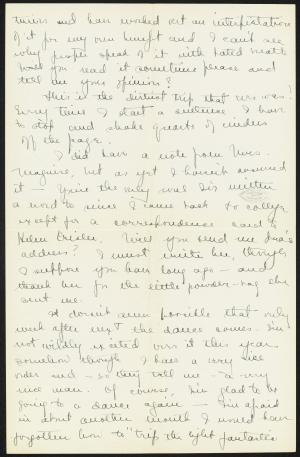 and have worked out an interpretation
of it for my own benefit and I can't see
why people speak of it with bated breath
Won't you read it sometime please and
tell me your opinion?
This is the dirtiest trip that ever was!
Every time I start a sentence I have
to stop and shake quarts of cinders
off the page.
I did have a note from Mrs.
Maguire, but as yet I haven't answered
it. You're the only one I've written
a word to since I came back to college
except for a correspondence card to
Helen. Will you send me
address? I must write her, though
I suppose you have long ago — and
thank her for the little powder-rag she
sent me.
It doesn't seem possible that only
week after next the dance comes. I'm
not wildly excited over it this year
somehow though I have a very nice
order and — so they tell me — a very
nice man. Of course, I'm glad to be
going to a dance again — I'm afraid
in about another month I would have
forgotten how to "trip the light fantastic